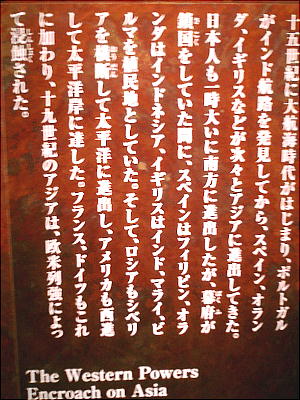 十五世紀に大航海時代がはじまり、ポルトガル
がインド航路を発見してから、スペイン、オラン
ダ、イギリスなどが次々とアジアに進出してきた。
日本人も一時大いに南方に進出したが、幕府が
鎖国をしていた間に、スペインはフィリピン、オラ
ンダはインドネシア、イギリスはインド、マライ、ビ
ルマを植民地としていた。そして、ロシアもシベリ
アを横断して太平洋に進出し、アメリカも西進
して太平洋岸に達した。フランス、ドイツもこれ
に加わり、十九世紀のアジアは、欧米列強によっ
て浸蝕された。
The Western Powers
Encroach on Asia